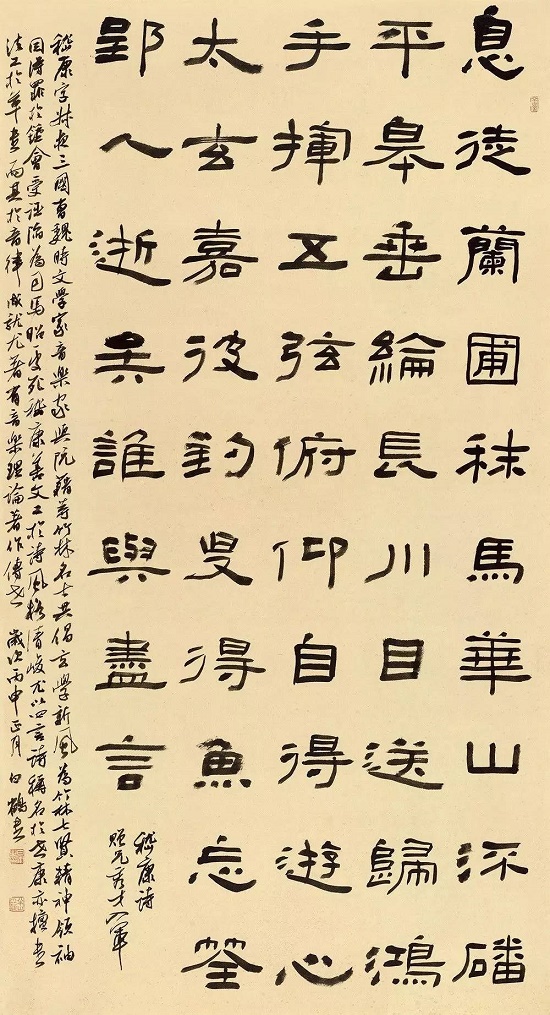 息徒蘭圃秣馬華山流磻
平皋垂綸長川目送歸鴻
手揮五弦俯仰自得游心
太玄嘉彼釣叟得魚忘筌
郢人逝矣誰與盡言
嵇康诗
赠兄秀才入軍
嵇康字叔夜三國曹魏時文學家音樂家與阮籍等竹林名士共倡玄學新風為竹林七賢精神領袖
因得罪於鍾會受誣陷為司馬昭處死嵇康善文工於詩風格清峻尤以四言詩稱名於世康亦擅書
法工於草書而其於音律成就尤著有音樂理論著作傳世歲次丙申正月白鶴書